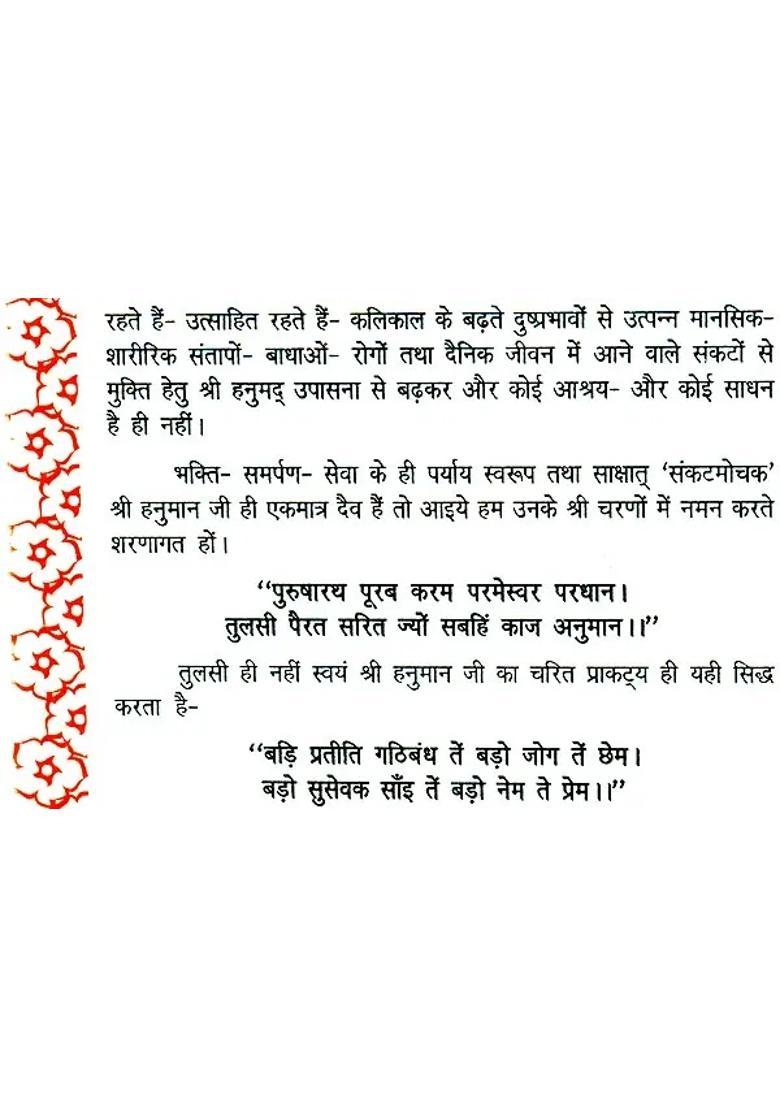 रहते हैं- उत्साहित रहते हैं- कलिकाल के बढ़ते दुष्प्रभावों से उत्पन्न मानसिक-
शारीरिक संतापों- बाधाओं- रोगों तथा दैनिक जीवन में आने वाले संकटों से
मुक्ति हेतु श्री हनुमद् उपासना से बढ़कर और कोई आश्रय- और कोई साधन
है ही नहीं।
भक्ति- समर्पण- सेवा के ही पर्याय स्वरूप तथा साक्षात् ‘संकटमोचक’
श्री हनुमान जी ही एकमात्र दैव हैं तो आइये हम उनके श्री चरणों में नमन करते
शरणागत हों।
“पुरुषारथ पूरब करम परमेस्वर परधान।
तुलसी पैरत सरित ज्यों सबहिं काज अनुमान।।”
तुलसी ही नहीं स्वयं श्री हनुमान जी का चरित प्राकट्य ही यही सिद्ध
करता है-
“बड़ि प्रतीति गठिबंध तें बड़ो जोग तें छेम।
बड़ो सुसेवक साँइ तें बड़ो नेम ते प्रेम।।”